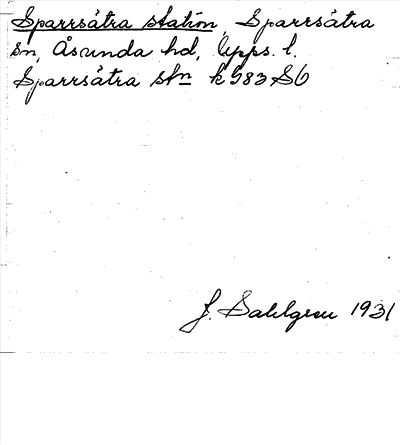 Sparrsåtra station, Sparrsåtra
sn, Åsunda hd, Upps. l.
Sparrsåtra stn k 983 SO
J. Sahlgren 1931